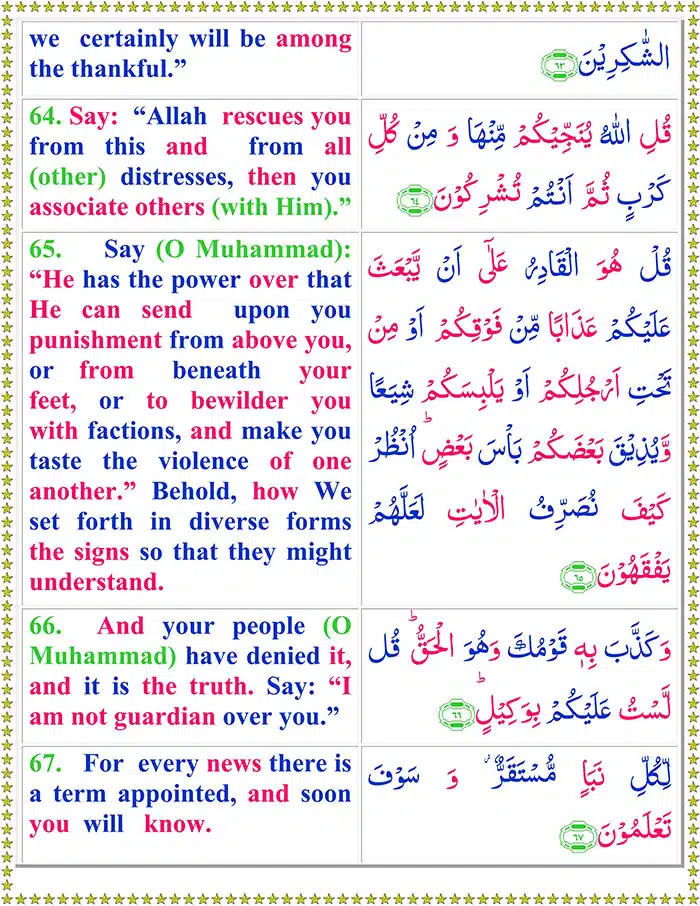 we certainly will be among
the thankful.”
الشّٰكِرِيْنَ ﴿٦٣﴾
64. Say: “Allah rescues you
from this and from all
(other) distresses, then you
associate others (with Him).”
قُلِ اللّٰهُ يُنَجِّيْكُمْ مِّنْهَا وَ مِنْ كُلِّ
كَرْبٍ ثُمَّ اَنْتُمْ تُشْرِكُوْنَ ﴿٦٤﴾
65. Say (O Muhammad):
“He has the power over that
He can send upon you
punishment from above you,
or from beneath your
feet, or to bewilder you
with factions, and make you
taste the violence of one
another.” Behold, how We
set forth in diverse forms
the signs so that they might
understand.
قُلْ هُوَ الْقَادِرُ عَلٰٓى اَنْ يَّبْعَثَ
عَلَيْكُمْ عَذَابًا مِّنْ فَوْقِكُمْ اَوْ مِنْ
تَحْتِ اَرْجُلِكُمْ اَوْ يَلْبِسَكُمْ شِيَعًا
وَّيُذِيْقَ بَعْضَكُمْ بَاْسَ بَعْضٍ ؕ اُنْظُرْ
كَيْفَ نُصَرِّفُ الْاٰيٰتِ لَعَلَّهُمْ
يَفْقَهُوْنَ ﴿٦٥﴾
66. And your people (O
Muhammad) have denied it,
and it is the truth. Say: “I
am not guardian over you.”
وَكَذَّبَ بِهٖ قَوْمُكَ وَهُوَ الْحَقُّ ؕ قُل
لَّسْتُ عَلَيْكُمْ بِوَكِيْلٍ ؕ ﴿٦٦﴾
67. For every news there is
a term appointed, and soon
you will know.
لِكُلِّ نَبَاٍ مُّسْتَقَرٌّ ؗ وَ سَوْفَ
تَعْلَمُوْنَ ﴿٦٧﴾